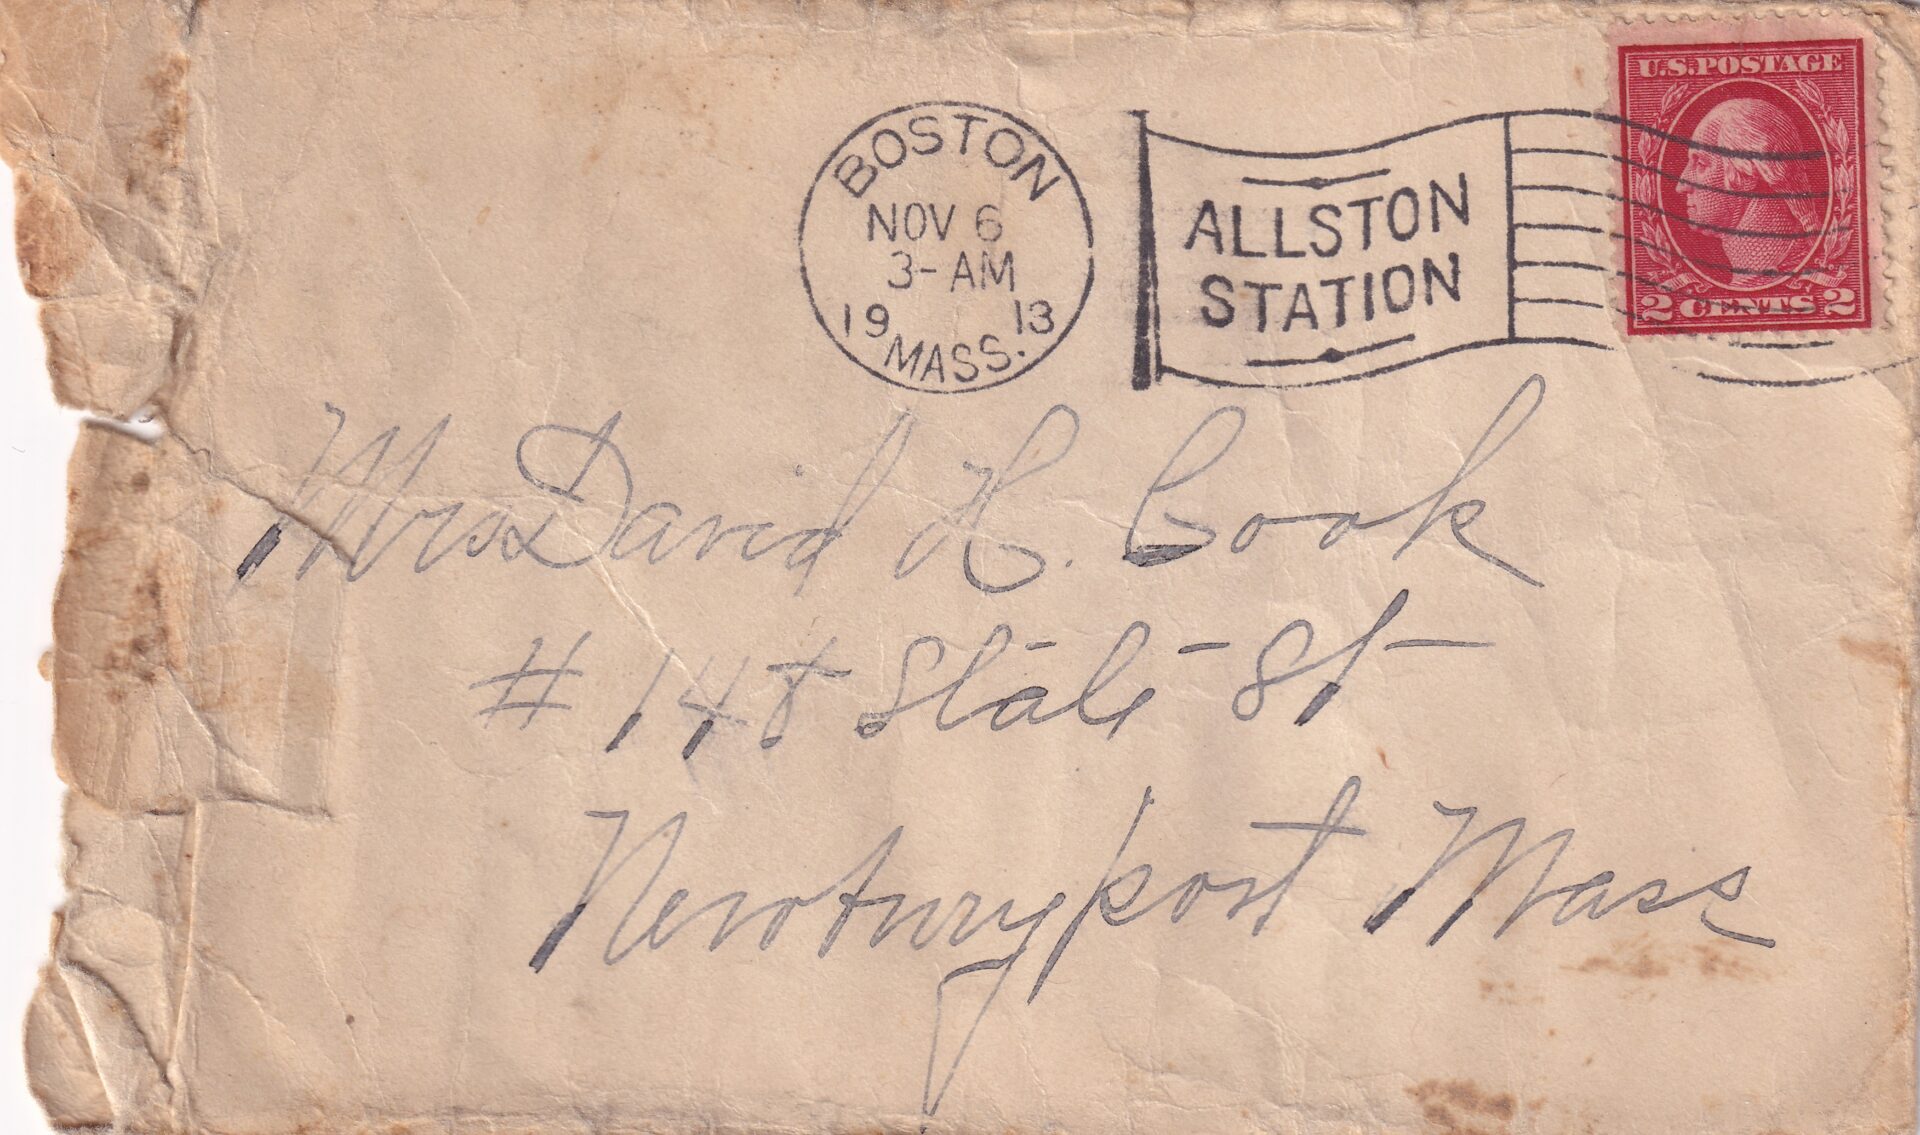 U.S. POSTAGE
2 CENTS 2
BOSTON
NOV 6
3-AM
19 13
MASS.
ALLSTON
STATION
Mrs David H. Cook
# 148 State St
Newburyport Mass